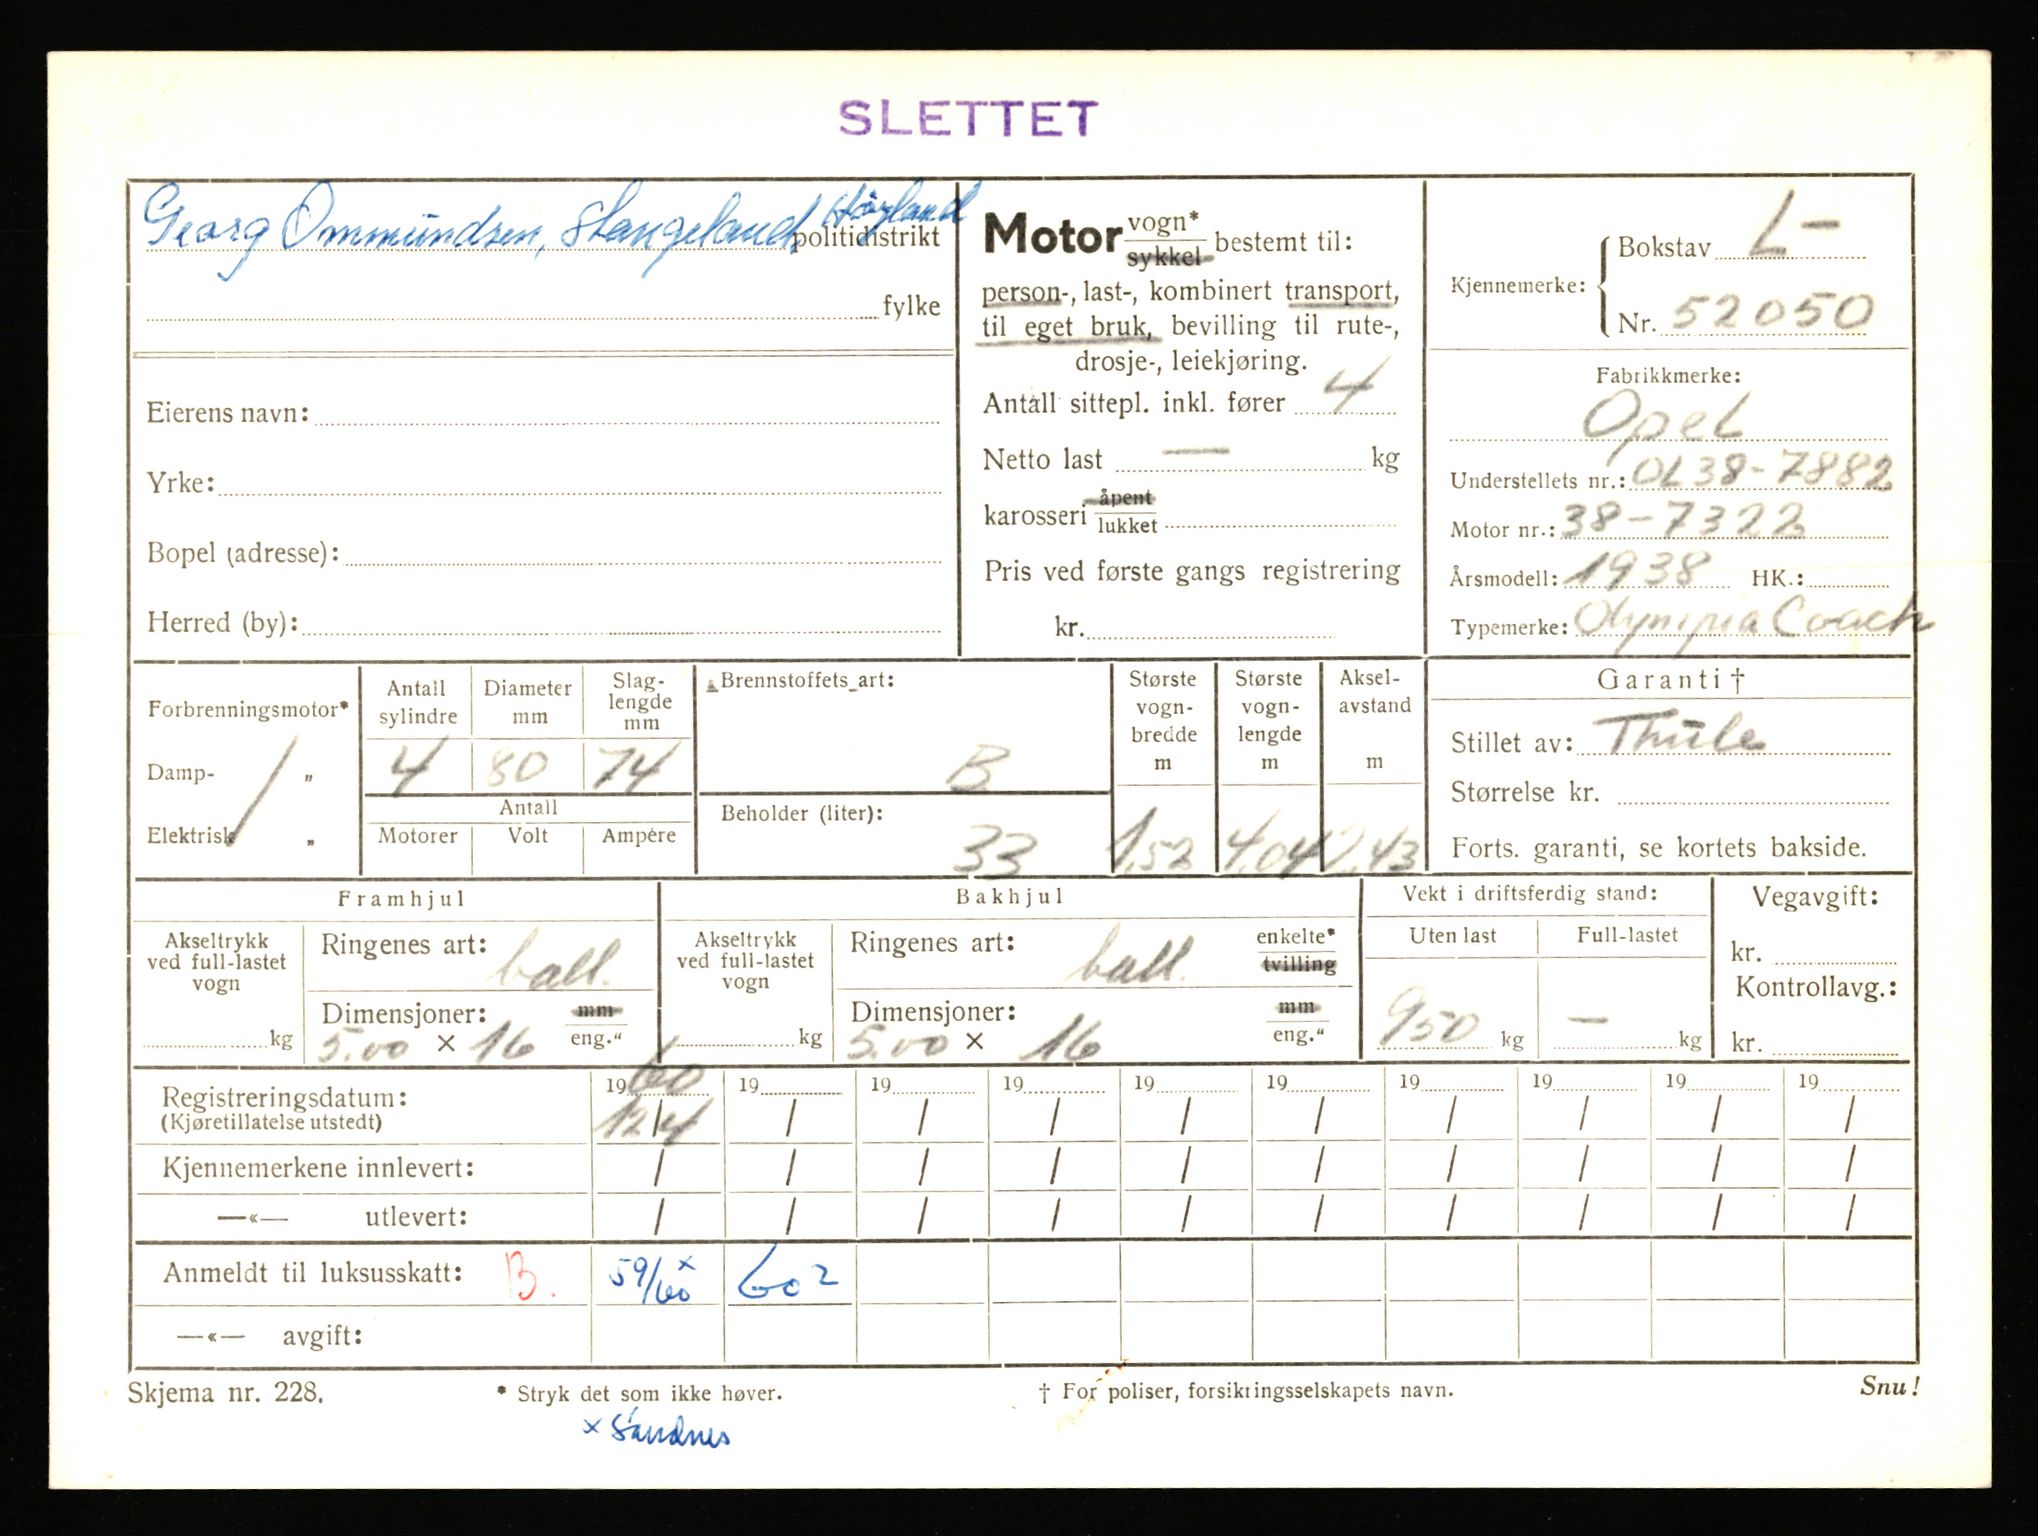 SLETTET
Georg Ommundsen, Stangeland, Høyland
politidistrikt
fylke
Eierens navn:
Yrke:
Bopel (adresse):
Herred (by):
Motor vogn* sykkel bestemt til:
person-, last-, kombinert transport,
til eget bruk, bevilling til rute-,
drosje-, leiekjøring.
Antall sittepl. inkl. fører 4
Netto last — kg
karosseri åpent lukket
Pris ved første gangs registrering
kr.
Kjennemerke: Bokstav L-
Nr. 52050
Fabrikkmerke:
Opel
Understellets nr.: OL38-7882
Motor nr.: 38-7322
Årsmodell: 1938 HK.:
Typemerke: Olympia Coach
Forbrenningsmotor*
Damp- "
Elektrisk "
Antall sylindre
Diameter mm
Slag-lengde mm
4 80 74
Antall
Motorer Volt Ampére
Brennstoffets art:
B
Beholder (liter):
33
Største vogn-bredde m
1,52
Største vogn-lengde m
4,04
Aksel-avstand m
2,43
Garanti †
Stillet av: Thule
Størrelse kr.
Forts. garanti, se kortets bakside.
Framhjul
Akseltrykk ved full-lastet vogn
kg
Ringenes art: ball.
Dimensjoner: mm
5.00 × 16 eng."
Bakhjul
Akseltrykk ved full-lastet vogn
kg
Ringenes art: ball. enkelte* tvilling
Dimensjoner: mm
5.00 × 16 eng."
Vekt i driftsferdig stand:
Uten last Full-lastet
950 kg — kg
Vegavgift:
kr.
Kontrollavg.:
kr.
Registreringsdatum: 1960 19 19 19 19 19 19 19 19 19
(Kjøretillatelse utstedt) 12/4 / / / / / / / / /
Kjennemerkene innlevert: / / / / / / / / / /
—«— utlevert: / / / / / / / / / /
Anmeldt til luksusskatt: B. 59/60 x 60 2
—«— avgift:
Skjema nr. 228. * Stryk det som ikke høver. † For poliser, forsikringsselskapets navn. Snu!
x Sandnes